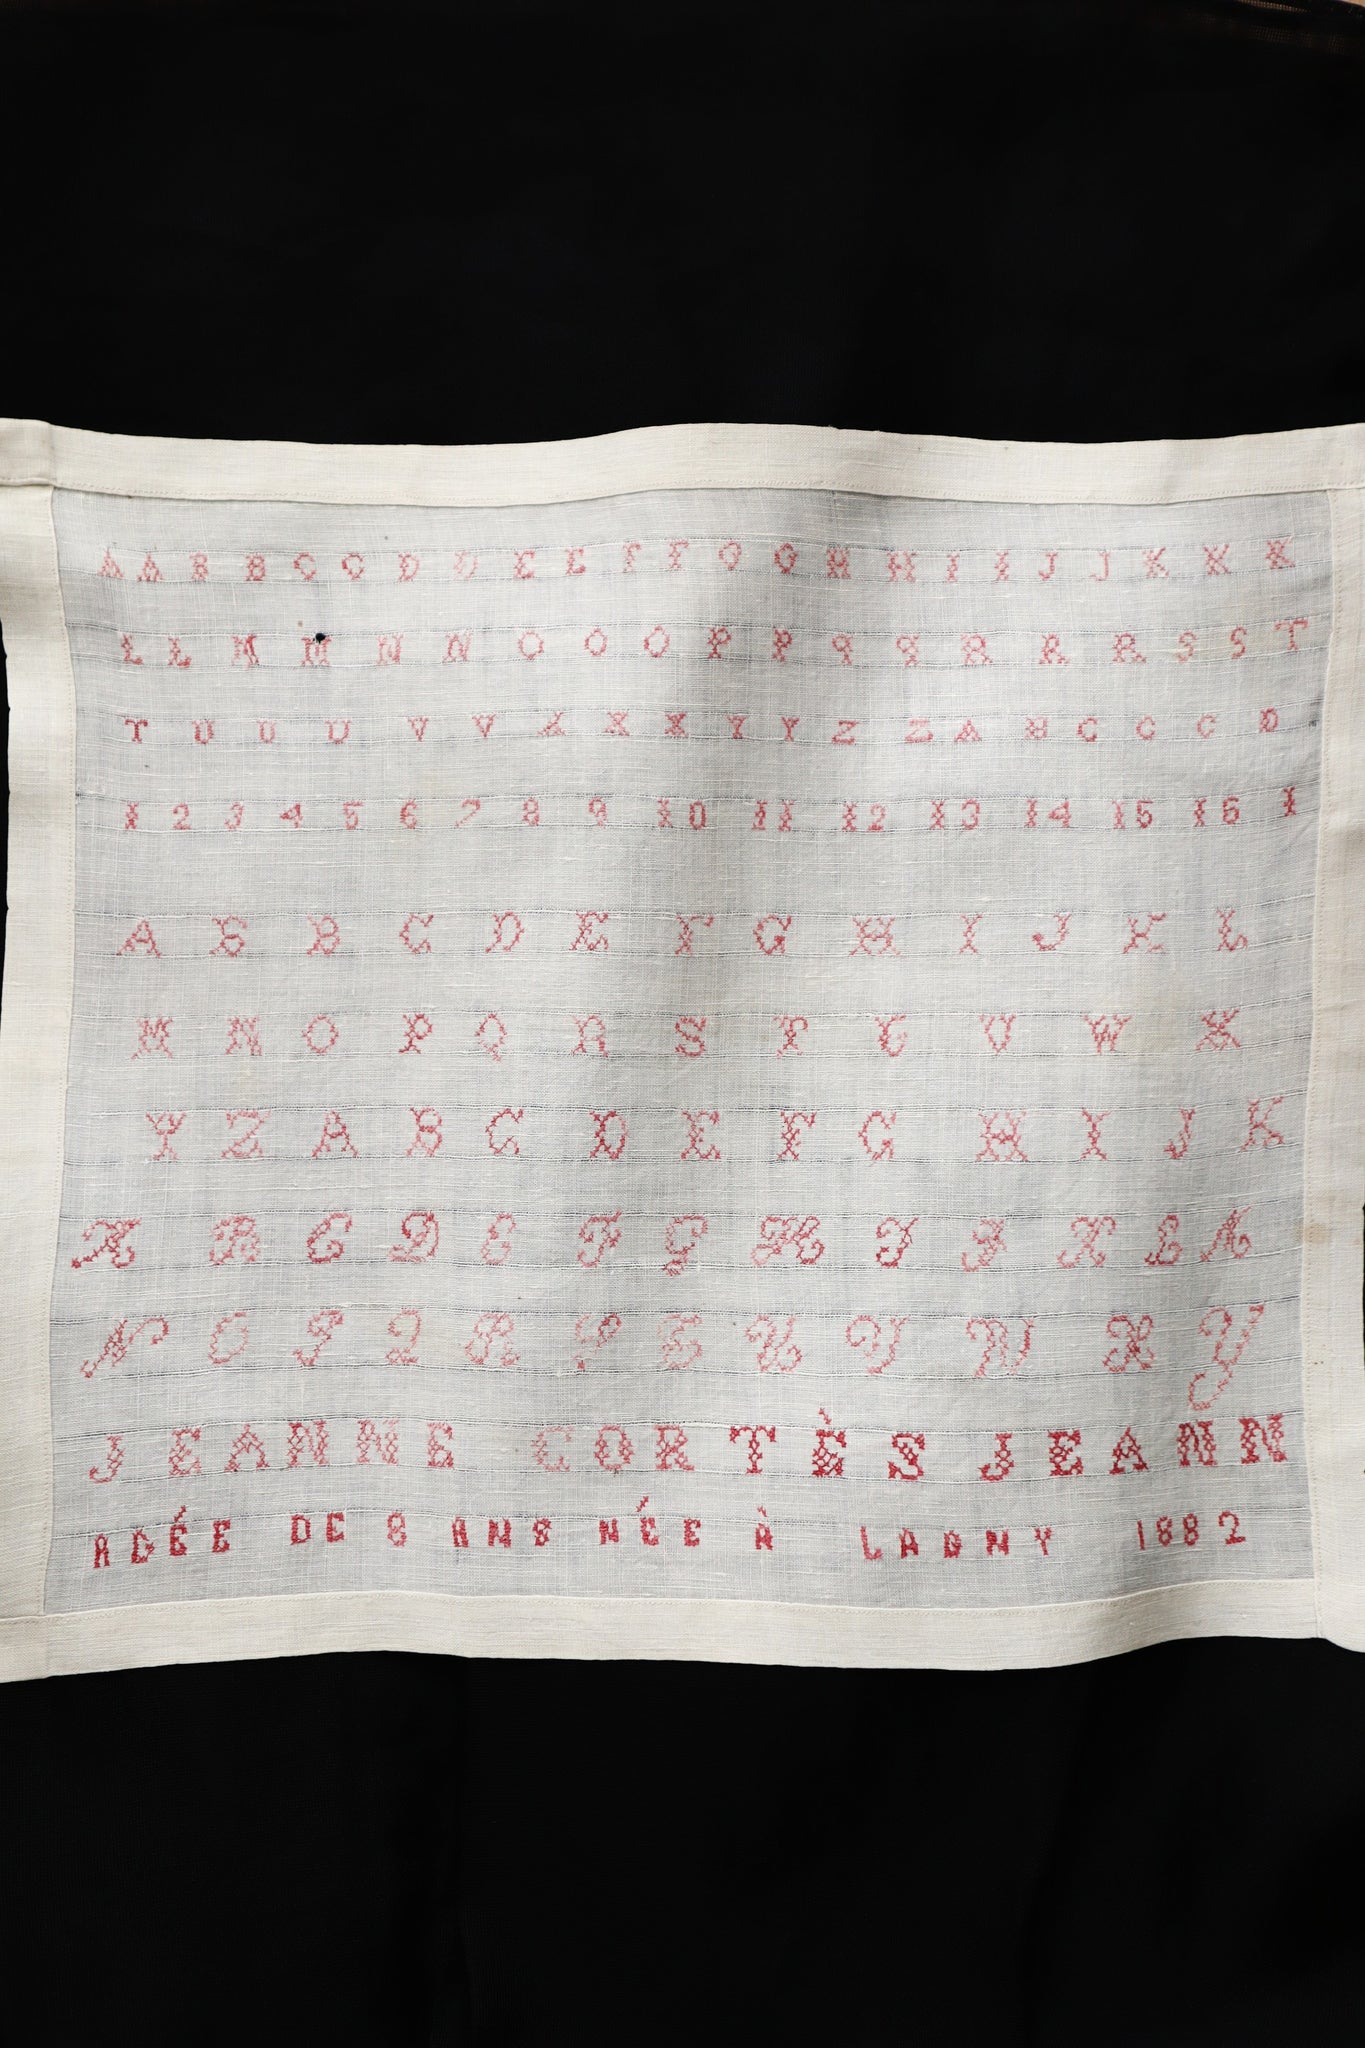 A A B B C C D D E E F F G G H H I I J J K K K
L L M M N N O O O P P q q R R R S S T
T U U U V V X X X Y Y Z Z A B C C C D
1 2 3 4 5 6 7 8 9 10 11 12 13 14 15 16 1
A B B C D E F G H I J K L
M N O P Q R S T U V W X
Y Z A B C D E F G H I J K
A B C D E F G H I J K L M
N O P Q R S T U V W X Y
JEANNE CORTÈS JEANN
AGÉE DE 8 ANS NÉE À LAGNY 1882